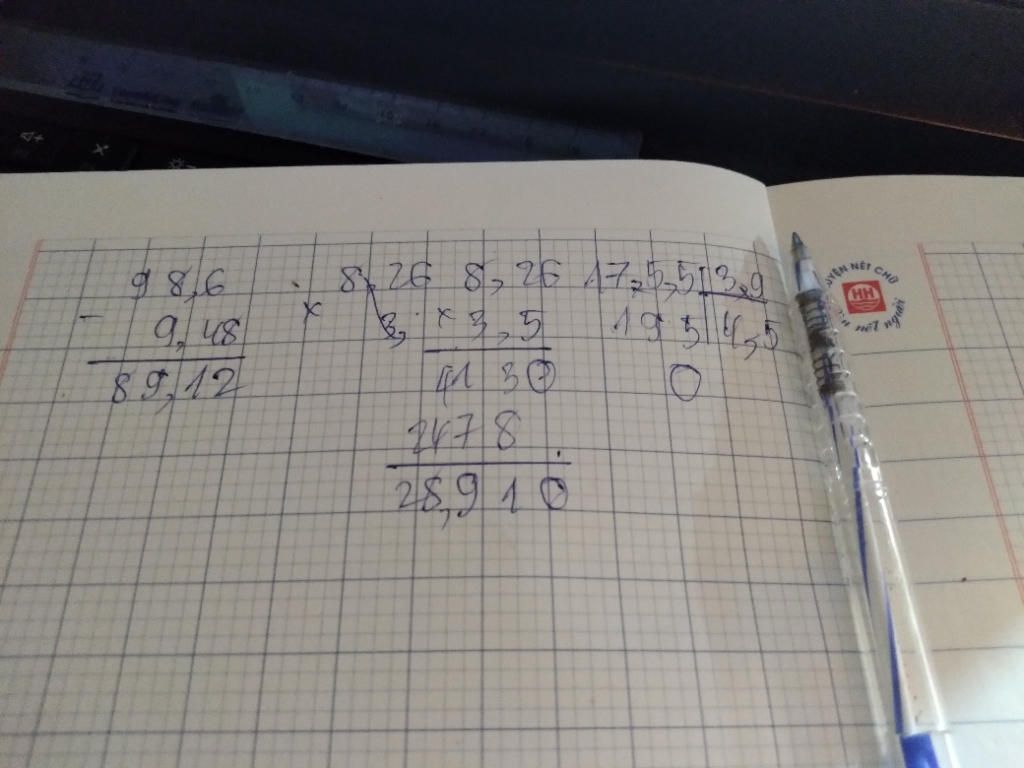 98,6 8,26 8,26 17,5,5 3,9
- 9,48 × 3, × 3,5 195 4,5
89,12 4130 0
2478
28,910
NÉT CHỮ
HH
nết người